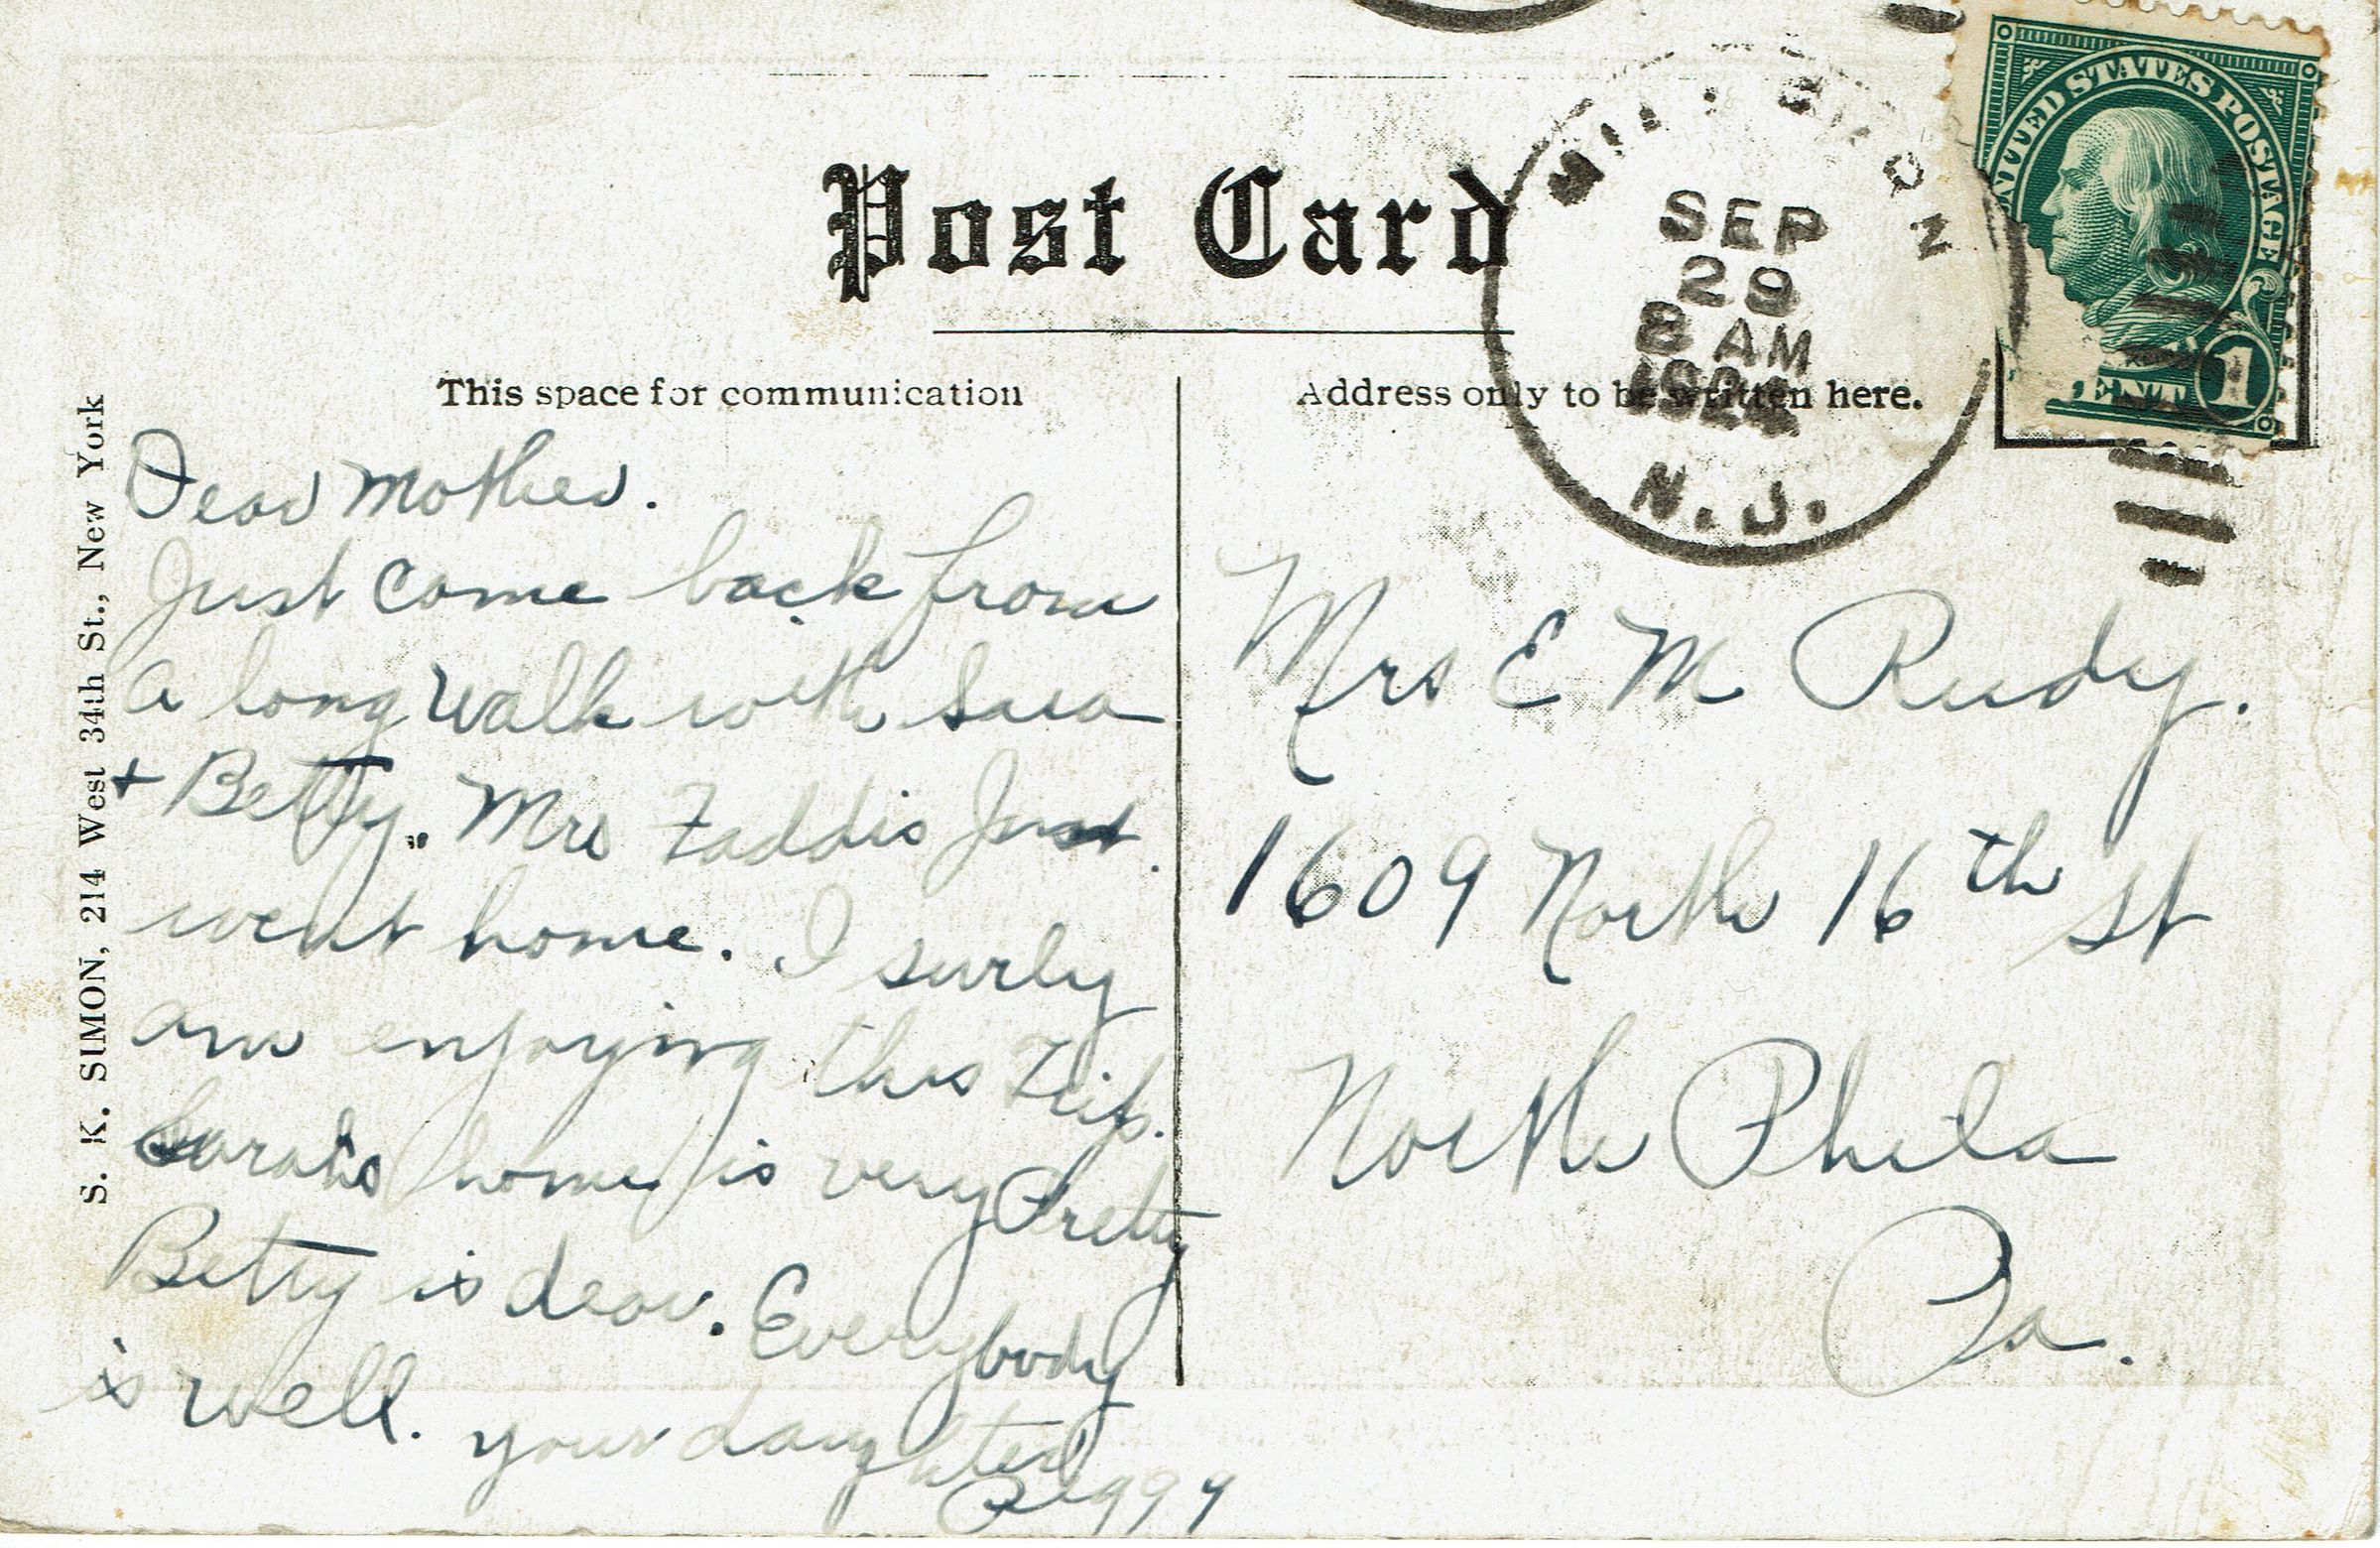 Post Card
SEP
29
8 AM
N. J.
UNITED STATES POSTAGE
1
This space for communication
Address only to be written here.
S. K. SIMON, 214 West 34th St., New York
Dear Mother.
Just come back from
a long walk with
+ Betty. Mrs Faddis Just
went home. I surly
am enjoying this Trip.
Sarahs home is very Pretty
Betty is dear. Everybody
is well. your daughter
Peggy
Mrs E M Rudy.
1609 North 16th St
North Phila
Pa.